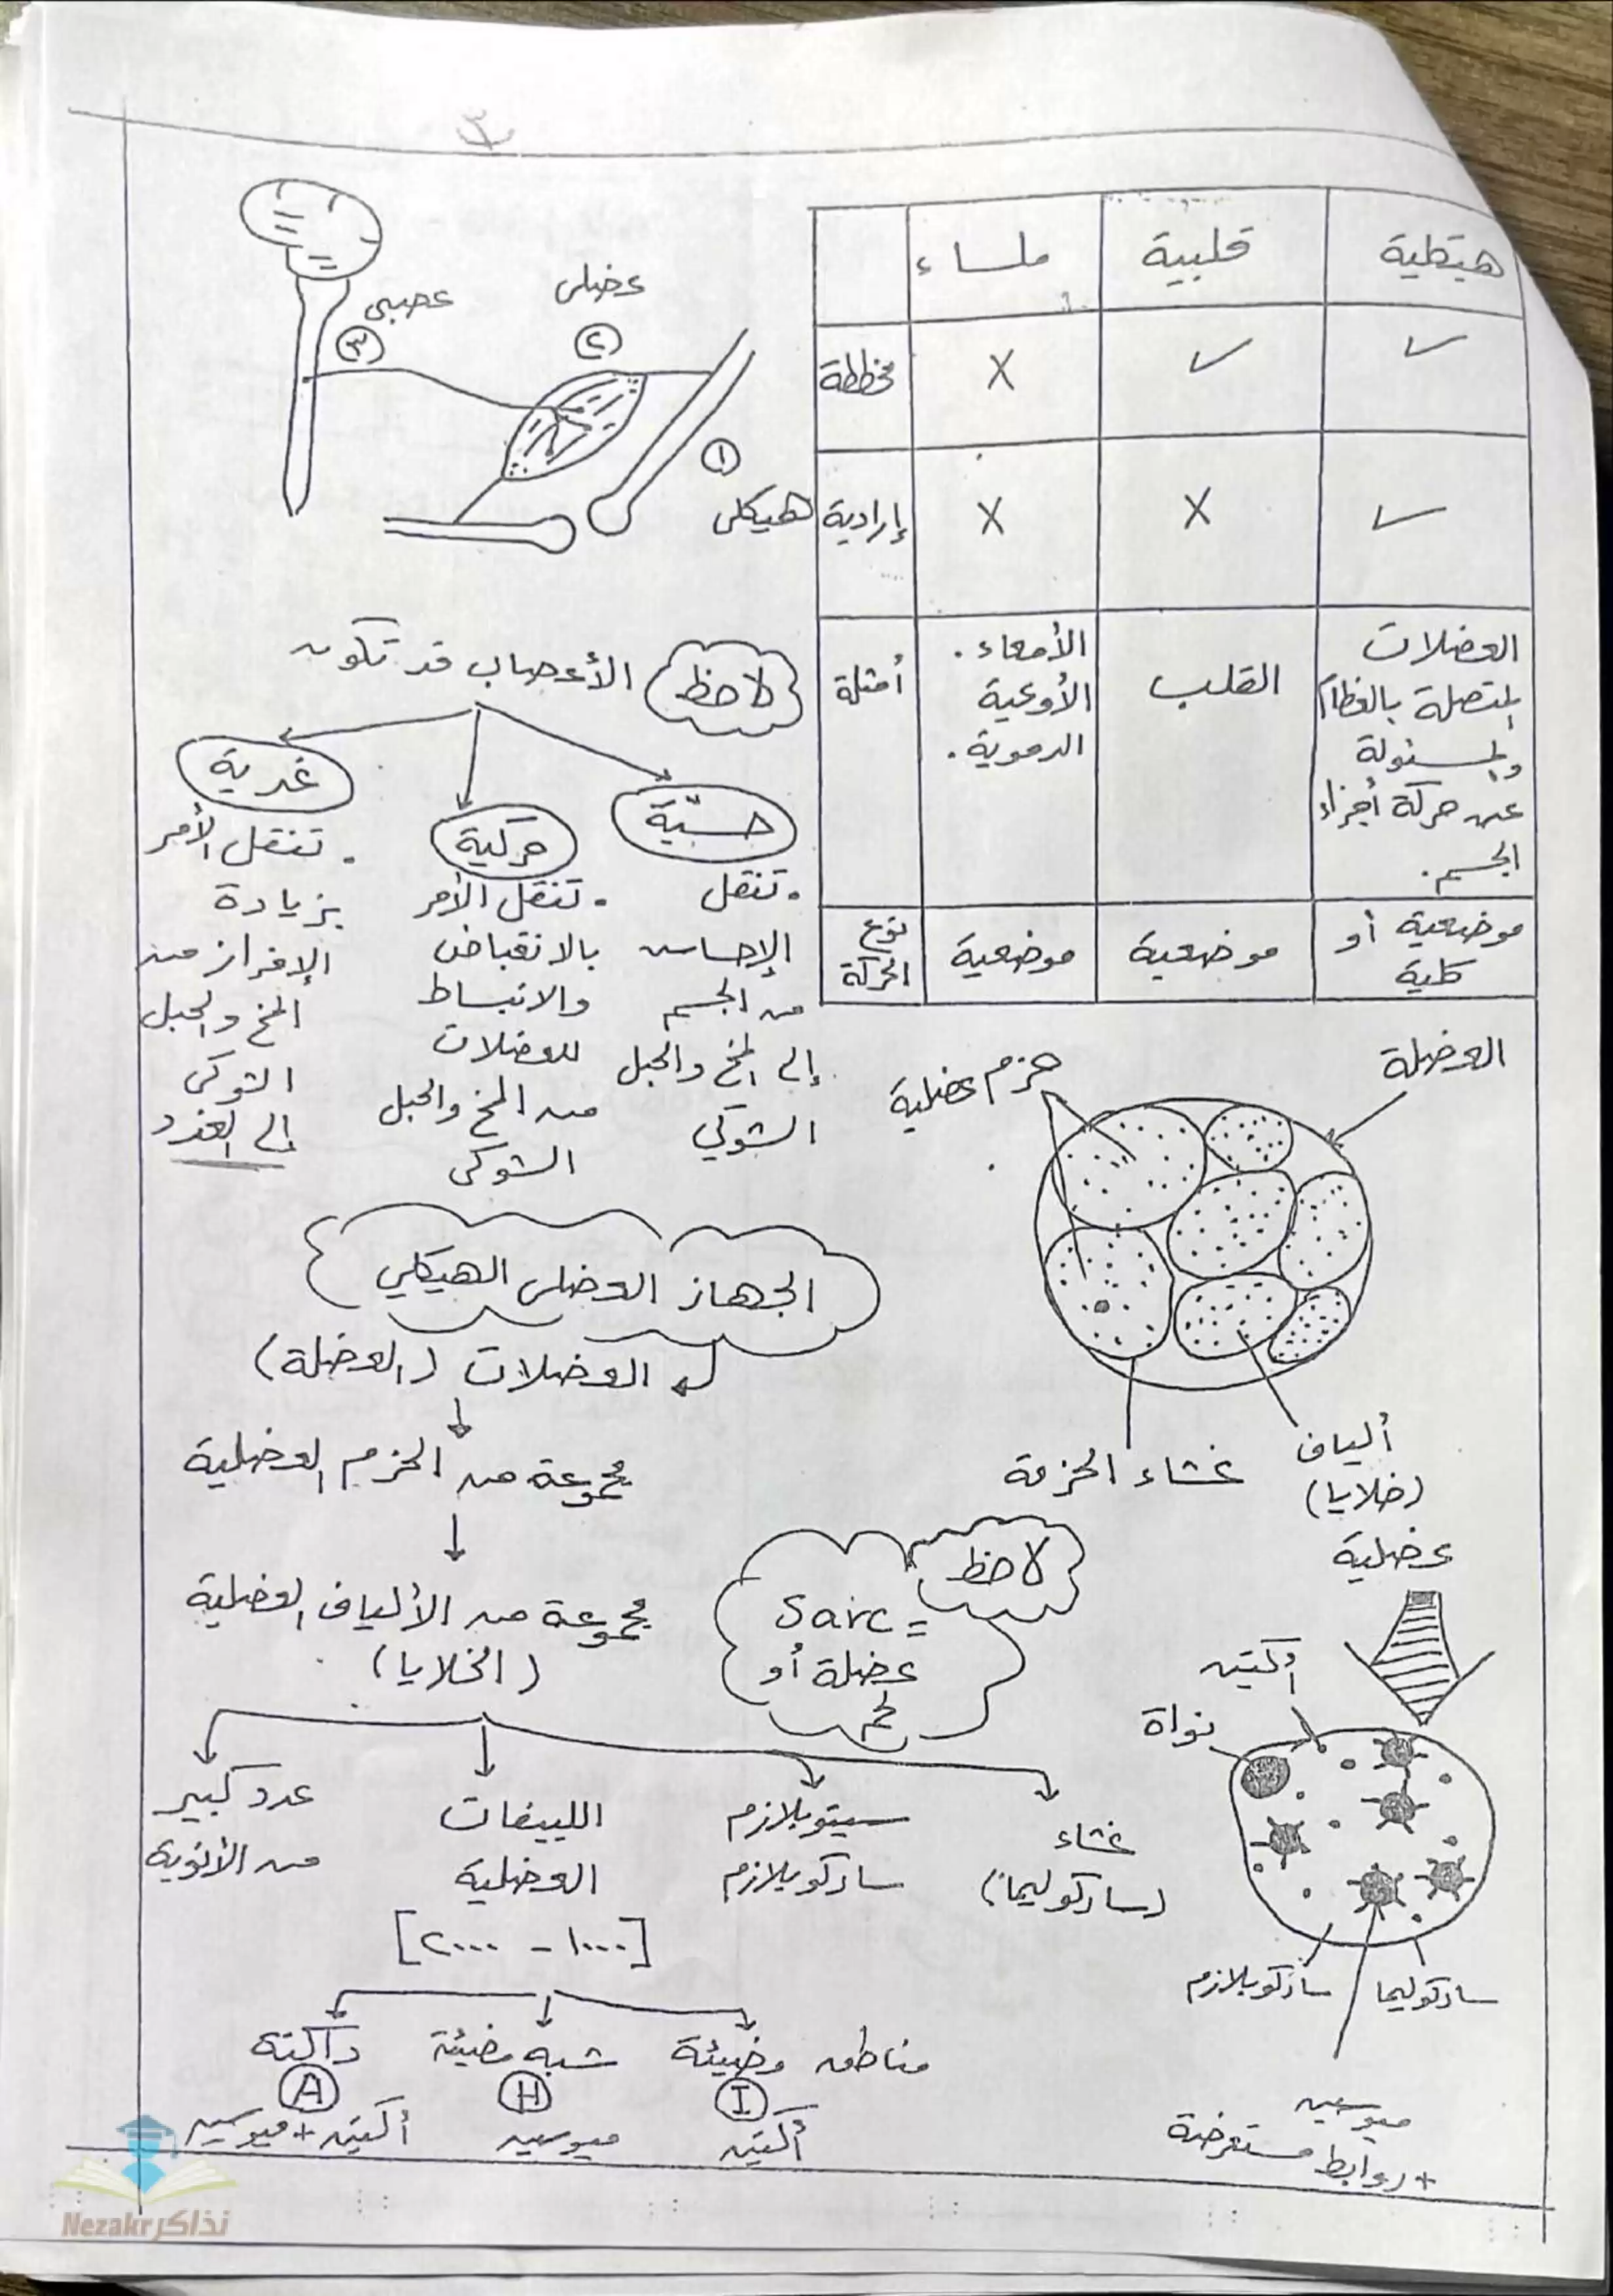 ٣
هيكلية
قلبية
ملساء
مخططة
✓
✓
X
إرادية
✓
X
X
أمثلة
العضلات
المتصلة بالعظام
والمسئولة
عن حركة أجزاء
الجسم.
القلب
الأمعاء.
الأوعية
الدموية.
نوع
الحركة
موضعية أو
كلية
موضعية
موضعية
عضلى
٢
عصبى
٣
١
هيكلى
لاحظ
الأعصاب قد تكون
حسّية
. تنقل
الإحساس
من الجسم
إلى المخ والحبل
الشوكي
حركية
. تنقل الأمر
بالانقباض
والانبساط
للعضلات
من المخ والحبل
الشوكى
غدية
. تنقل الأمر
بزيادة
الإفراز من
المخ والحبل
الشوكى
إلى الغدد
العضلة
حزم عضلية
غشاء الحزمة
ألياف
(خلايا)
عضلية
الجهاز العضلى الهيكلي
العضلات (العضلة)
مجموعة من الحزم العضلية
مجموعة من الألياف العضلية
(الخلايا)
لاحظ
Sarc =
عضلة أو
لحم
غشاء
(ساركوليما)
سيتوبلازم
ساركوبلازم
اللييفات
العضلية
[١٠٠٠ - ٢٠٠٠]
عدد كبير
من الأنوية
أكتين
نواة
ساركوليما
ساركوبلازم
ميوسين
+ روابط مستعرضة
مناطق مضيئة
I
أكتين
شبه مضيئة
H
ميوسين
داكنة
A
أكتين + ميوسين
نذاكر Nezakr